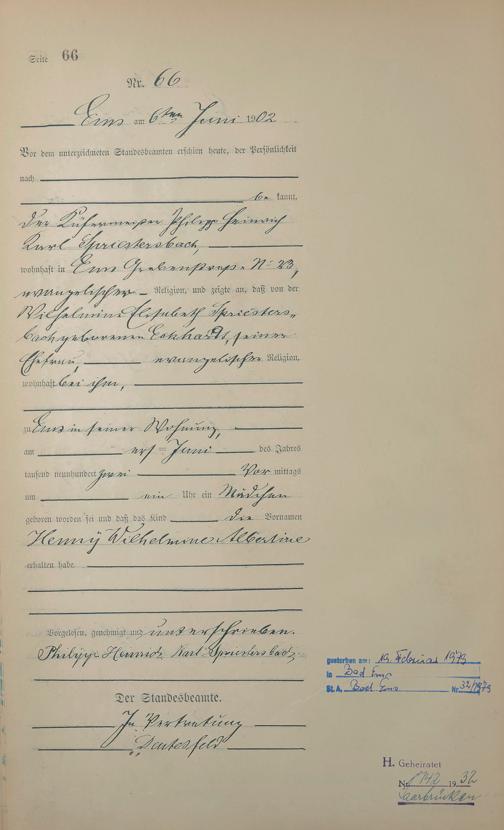 Seite 66
Nr. 66
Ems am 6ten Juni 1902
Vor dem unterzeichneten Standesbeamten erschien heute, der Persönlichkeit
nach
be kannt,
der Philipp Heinrich
Karl Spriestersbach,
wohnhaft in Ems Grabenstraße No 23,
evangelischer Religion, und zeigte an, daß von der
Wilhelmine Elisabeth Spriesters-
bach geborenen Eckhardt, seiner
Ehefrau, evangelischer Religion,
wohnhaft bei ihm,
zu Ems in seiner Wohnung,
am ersten Juni des Jahres
tausend neunhundert zwei Vor mittags
um ein Uhr ein Mädchen
geboren worden sei und daß das Kind die Vornamen
Henny Wilhelmine Albertine
erhalten habe.
Vorgelesen, genehmigt und unterschrieben.
Philipp Heinrich Karl Spriestersbach
Der Standesbeamte.
In Vertretung
gestorben am: 19. Februar 1973
in Bad Ems
St. A. Bad Ems Nr. 32/1973
H. Geheiratet
No 1932
Saarbrücken